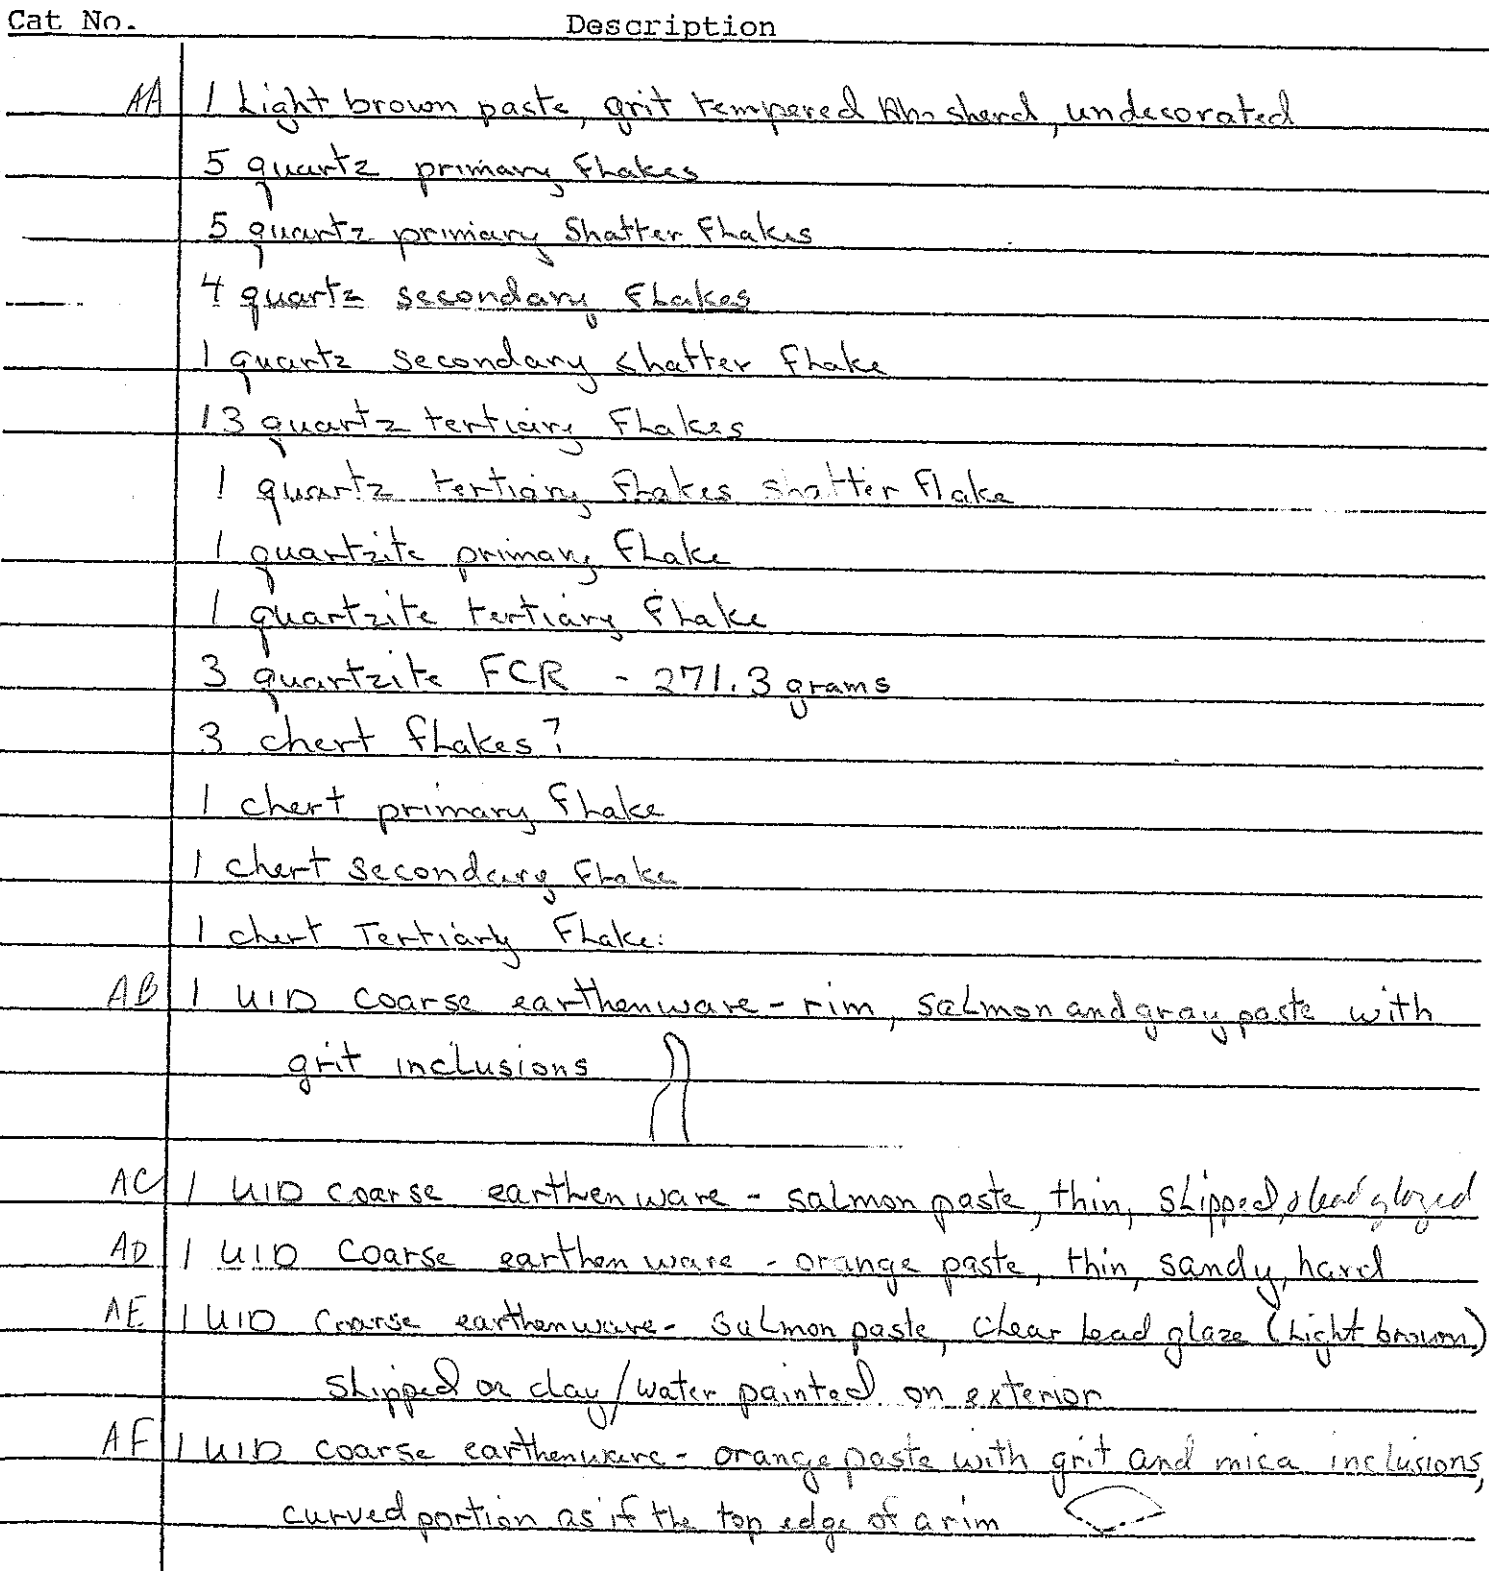 Cat No. Description
AA 1 Light brown paste, grit tempered Abo sherd, undecorated
5 quartz primary Flakes
5 quartz primary Shatter Flakes
4 quartz secondary Flakes
1 quartz secondary shatter flake
13 quartz tertiary Flakes
1 quartz tertiary flakes shatter flake
1 quartzite primary flake
1 quartzite tertiary flake
3 quartzite FCR - 271.3 grams
3 chert flakes?
1 chert primary flake
1 chert secondary flake
1 chert Tertiary Flake.
AB 1 UID coarse earthenware - rim, salmon and gray paste with
grit inclusions
AC 1 UID coarse earthenware - salmon paste, thin, slipped, & lead glazed
AD 1 UID coarse earthenware - orange paste, thin, sandy, hard
AE 1 UID coarse earthenware - salmon paste, clear lead glaze (light brown)
slipped or clay/water painted on exterior
AF 1 UID coarse earthenware - orange paste with grit and mica inclusions,
curved portion as if the top edge of a rim